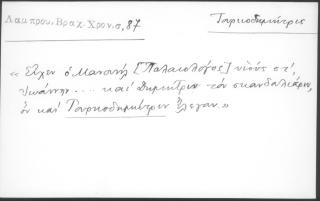 Λαμπρου, Βραχ. Χρον. σ, 87
Τουρκοδημήτρις
« Εἶχεν ὁ Μανουὴλ [Παλαιολόγος] υἱοὺς στ',
Ἰωάννην .... καὶ Δημήτριν τὸν σκανδαλιάρην,
ὃν καὶ Τουρκοδημήτριν ἔλεγαν. »